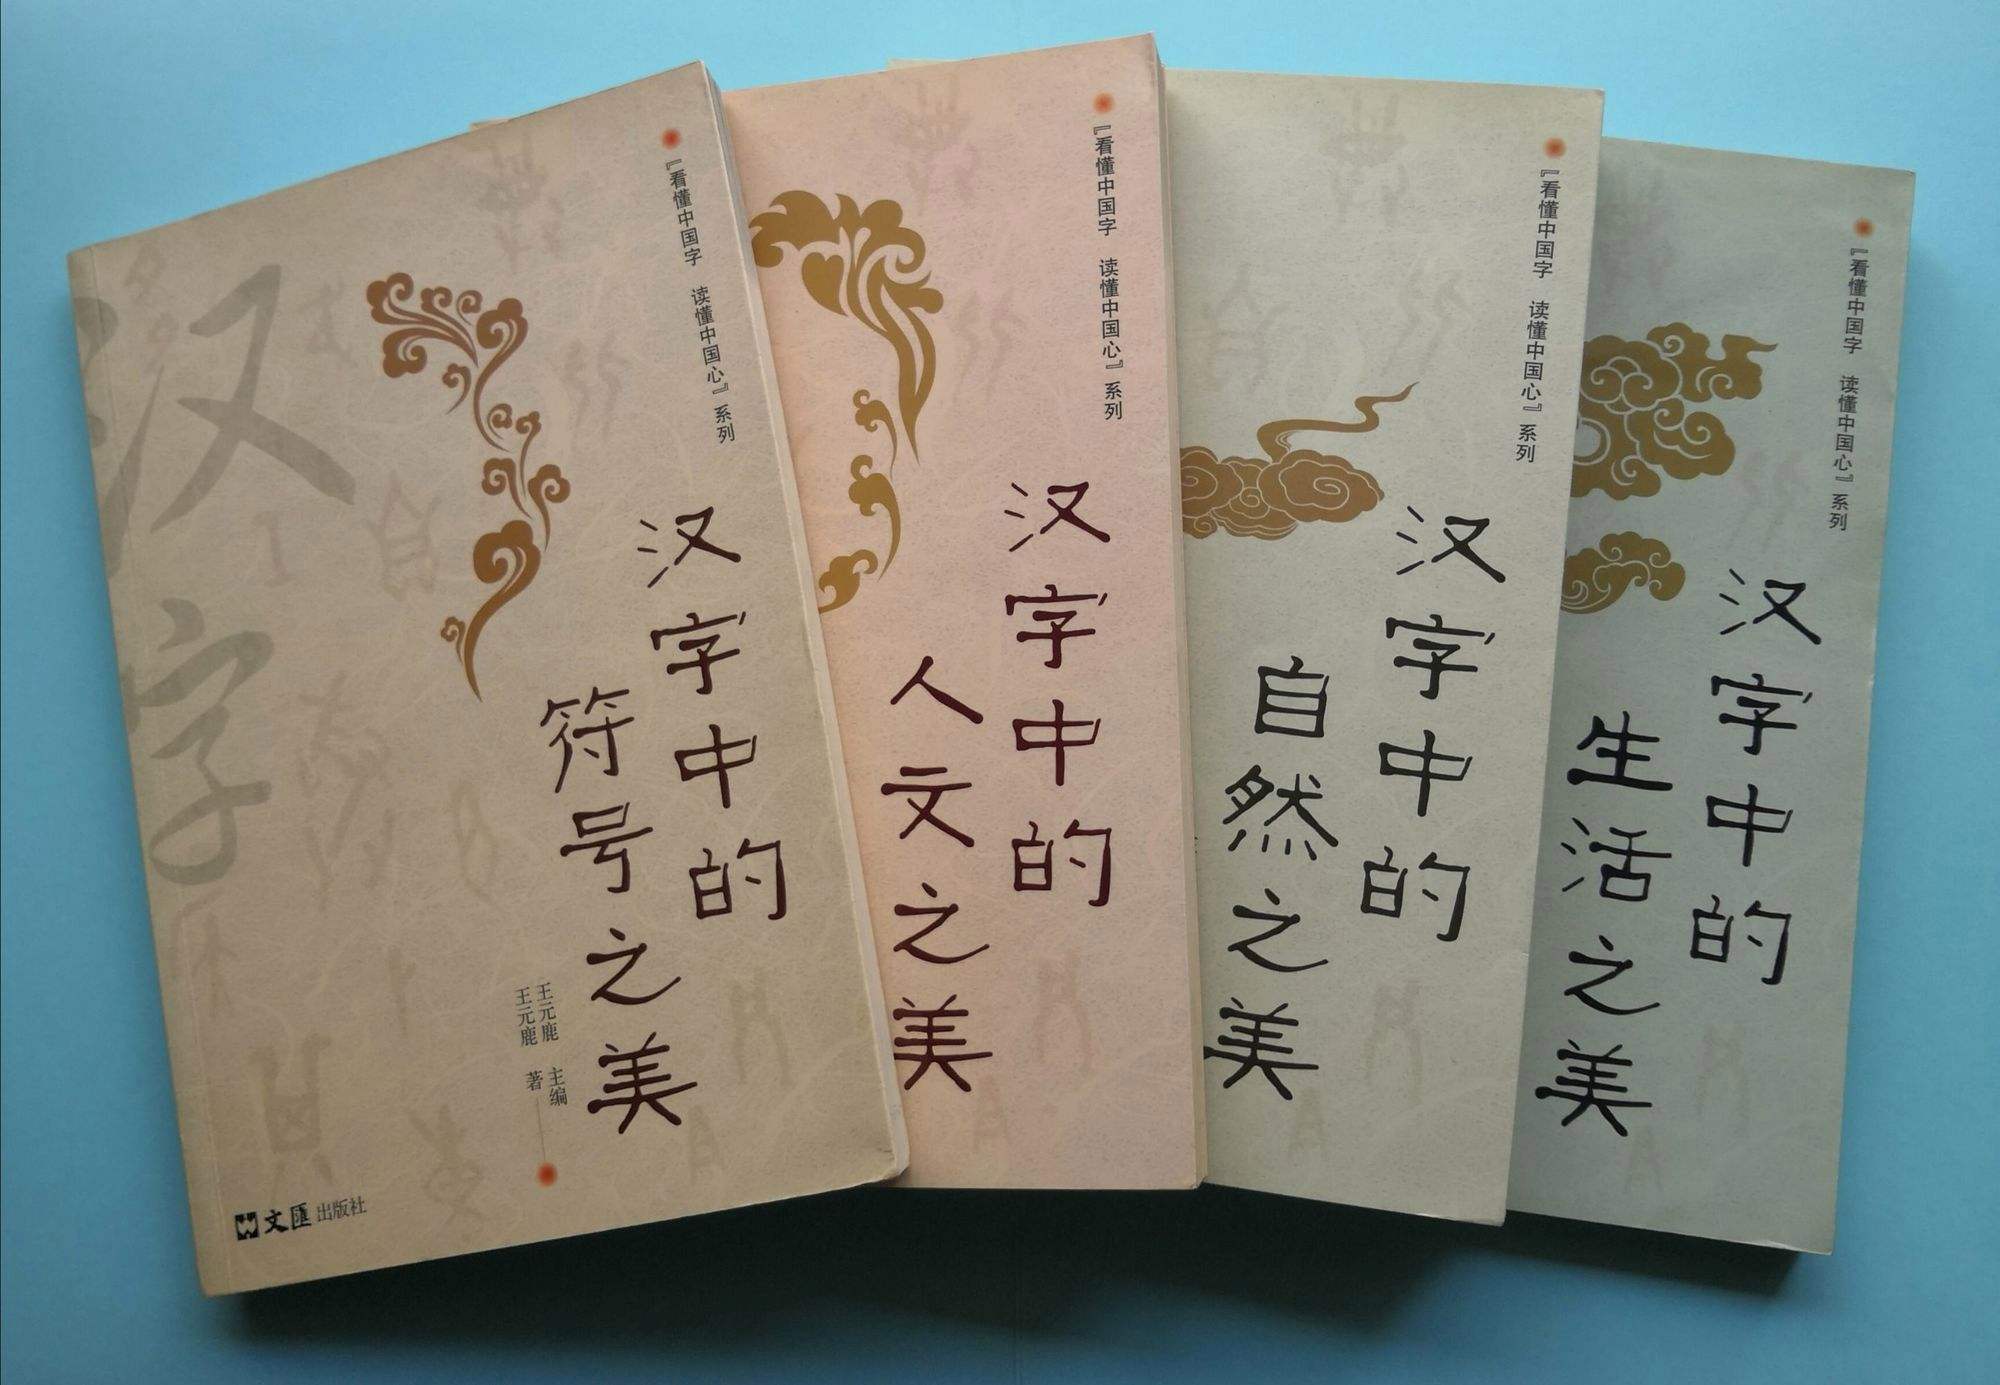 汉字
『看懂中国字 读懂中国心』系列
汉字中的
符号之美
王元鹿 主编
王元鹿 著
文匯出版社
『看懂中国字 读懂中国心』系列
汉字中的
人文之美
『看懂中国字 读懂中国心』系列
汉字中的
自然之美
『看懂中国字 读懂中国心』系列
汉字中的
生活之美